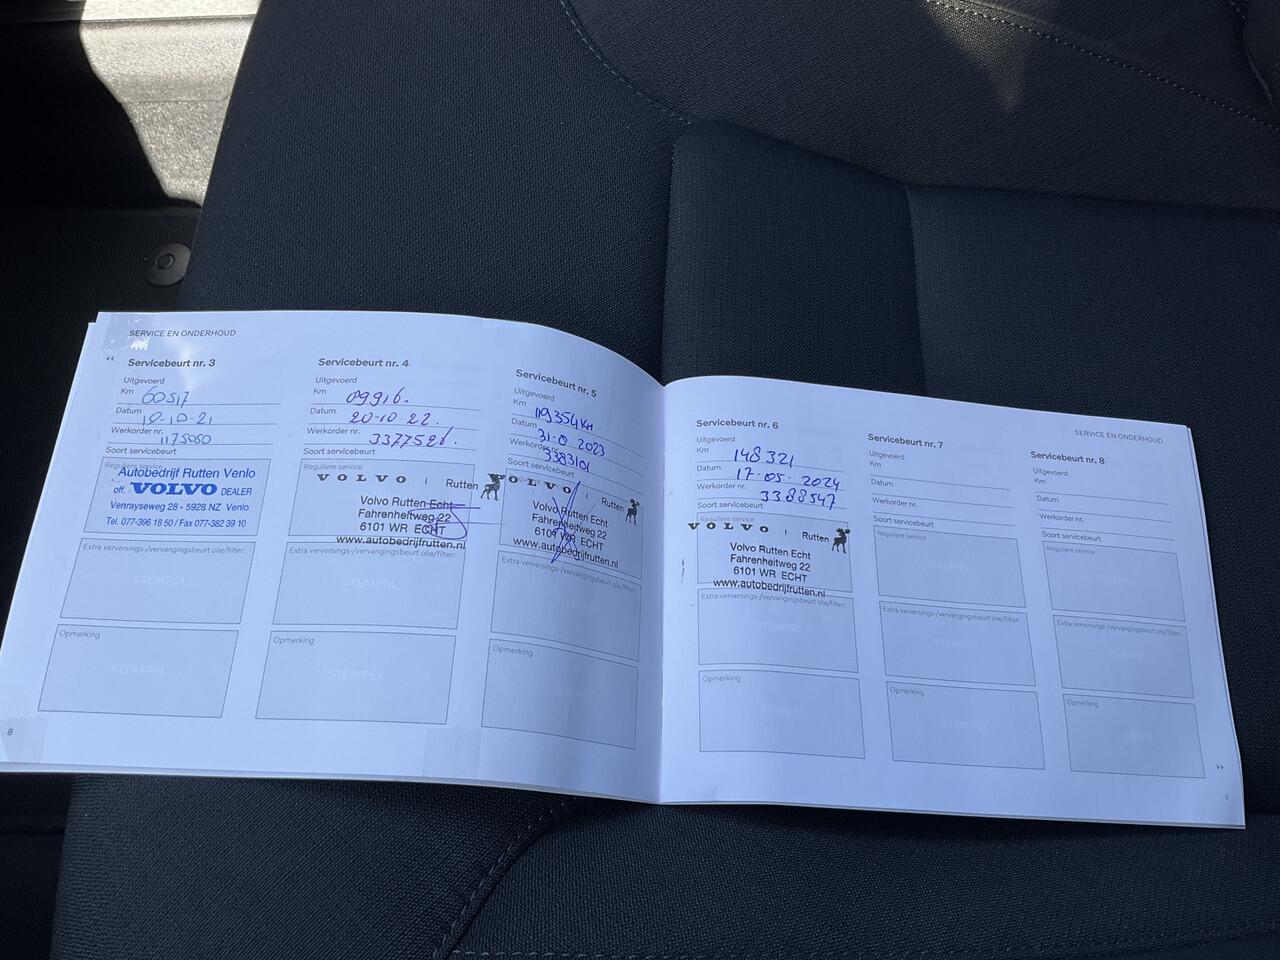 SERVICE EN ONDERHOUD
Servicebeurt nr. 3
Uitgevoerd
Km 60517
Datum 10-21
Werkorder nr. 1175050
Soort servicebeurt
Reguliere service
Autobedrijf Rutten Venlo
off. VOLVO DEALER
Venrayseweg 28 - 5928 NZ Venlo
Tel. 077-396 18 50 / Fax 077-382 39 10
Extra verversings-/vervangingsbeurt olie/filter:
STEMPEL
Opmerking
STEMPEL
8
Servicebeurt nr. 4
Uitgevoerd
Km 09916.
Datum 20-10-22.
Werkorder nr. 3377526.
Soort servicebeurt
Reguliere service
VOLVO | Rutten
Volvo Rutten Echt
Fahrenheitweg 22
6101 WR ECHT
www.autobedrijfrutten.nl
Extra verversings-/vervangingsbeurt olie/filter:
STEMPEL
Opmerking
STEMPEL
Servicebeurt nr. 5
Uitgevoerd
Km 119354 KM
Datum 2023
Werkorder nr. 3383101
Soort servicebeurt
VOLVO | Rutten
Volvo Rutten Echt
Fahrenheitweg 22
6101 WR ECHT
www.autobedrijfrutten.nl
Extra verversings-/vervangingsbeurt olie/filter:
Opmerking
SERVICE EN ONDERHOUD
Servicebeurt nr. 6
Uitgevoerd
Km 148321
Datum 17-05-2024
Werkorder nr. 3388547
Soort servicebeurt
Reguliere service
VOLVO | Rutten
Volvo Rutten Echt
Fahrenheitweg 22
6101 WR ECHT
www.autobedrijfrutten.nl
Extra verversings-/vervangingsbeurt olie/filter:
STEMPEL
Opmerking
STEMPEL
Servicebeurt nr. 7
Uitgevoerd
Km
Datum
Werkorder nr.
Soort servicebeurt
Reguliere service
STEMPEL
Extra verversings-/vervangingsbeurt olie/filter:
STEMPEL
Opmerking
STEMPEL
Servicebeurt nr. 8
Uitgevoerd
Km
Datum
Werkorder nr.
Soort servicebeurt
Reguliere service
STEMPEL
Extra verversings-/vervangingsbeurt olie/filter:
STEMPEL
Opmerking
STEMPEL
9